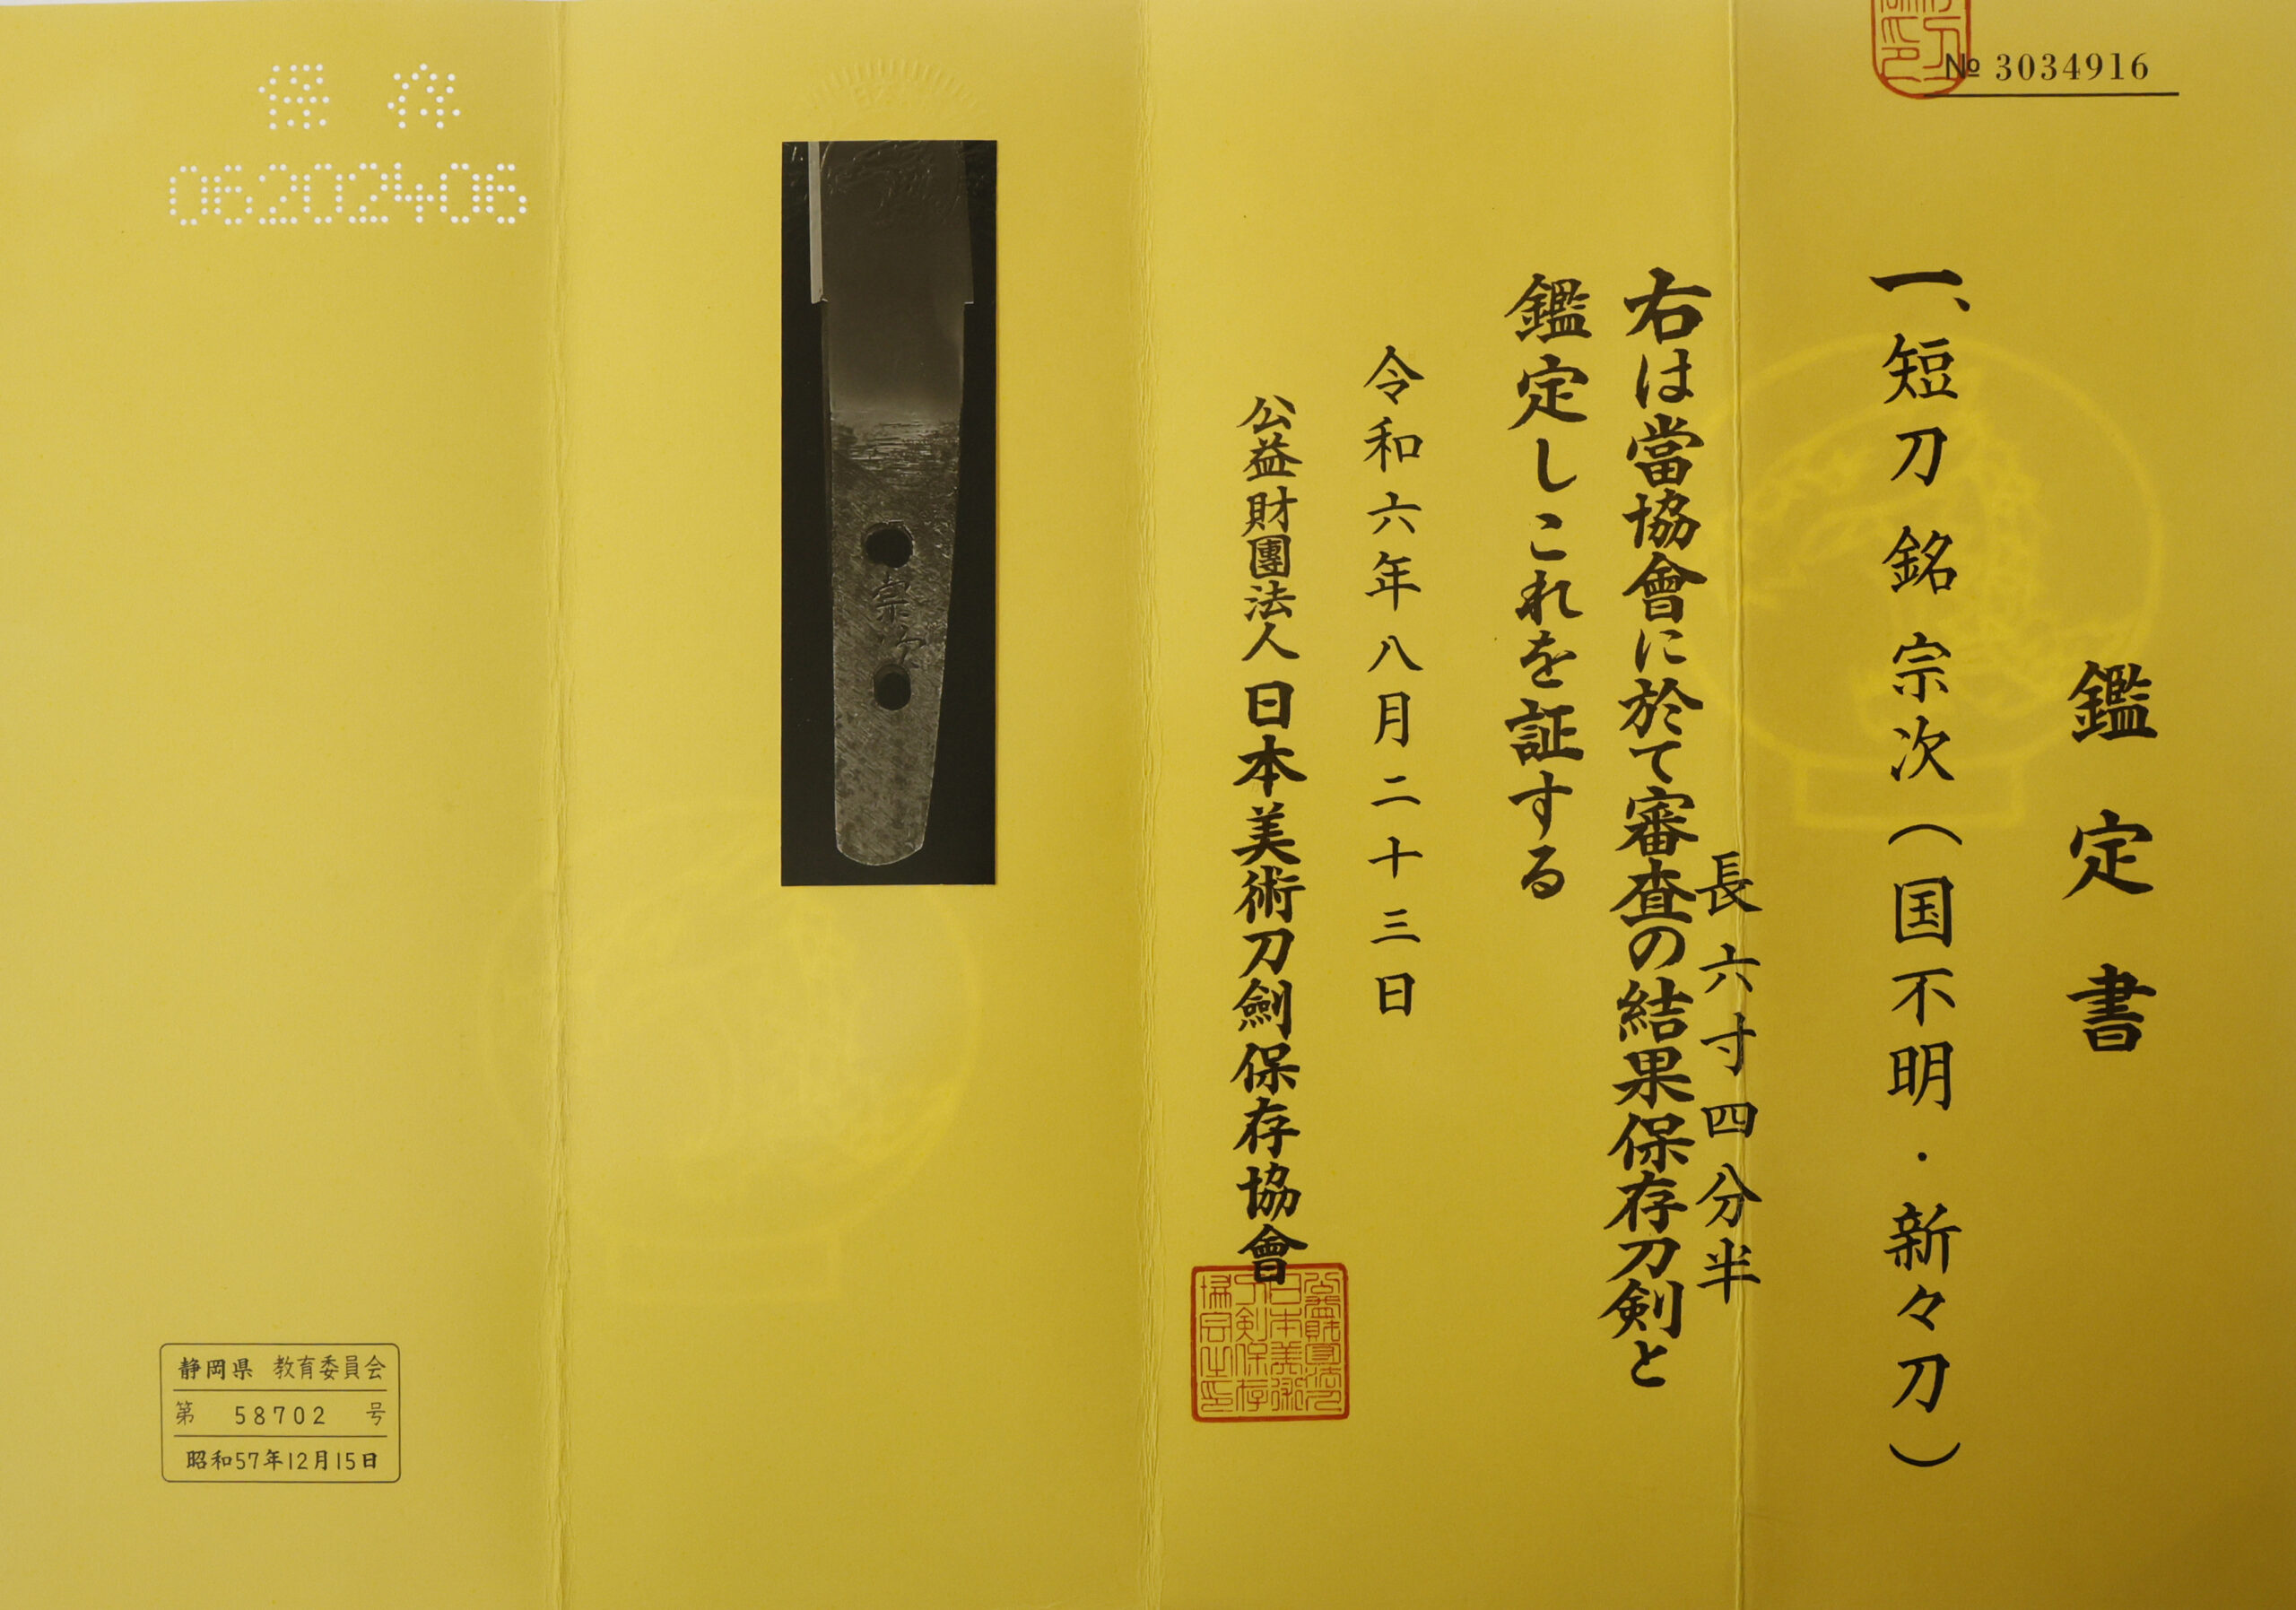 № 3034916
鑑定書
一、短刀 銘 宗次（国不明・新々刀）
長六寸四分半
右は當協會に於て審査の結果保存刀剣と
鑑定しこれを証する
令和六年八月二十三日
公益財團法人 日本美術刀劍保存協會
公益財団法人
日本美術
刀剣保存
協会之印
宗次
保存
06202406
静岡県 教育委員会
第 58702 号
昭和57年12月15日